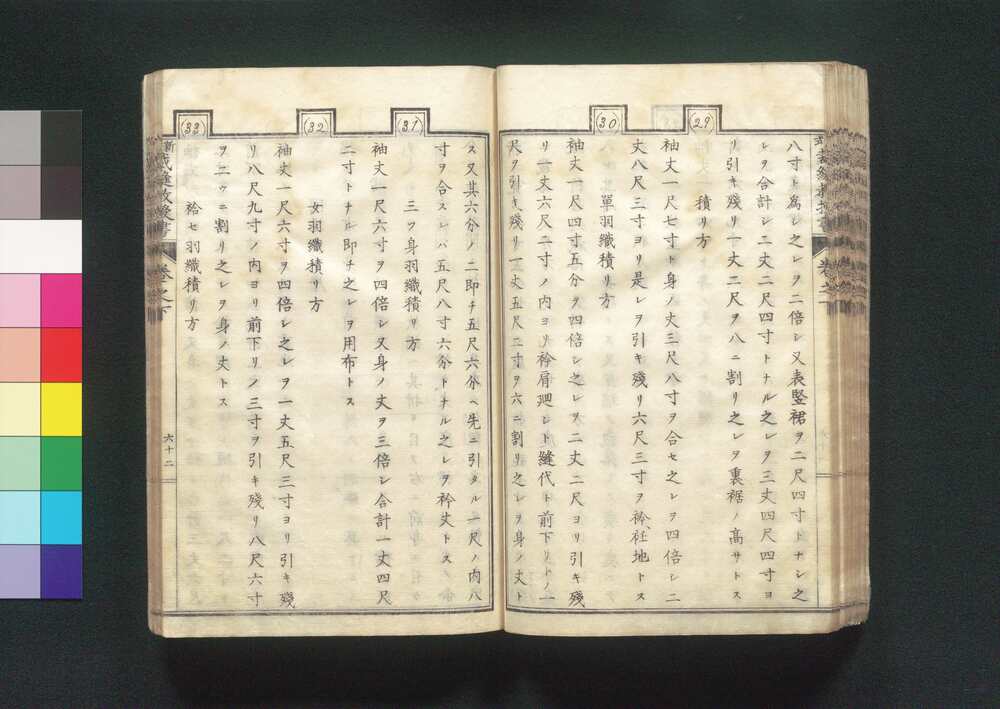 八寸ト為レ之レヲ二倍シ又表竪裙ヲ二尺四寸トナシ之
レヲ合計シ二丈二尺四寸トナル之レヲ三丈四尺四寸ヨ
リ引キ殘リ一丈二尺ヲ八ニ割リ之レヲ裏裾ノ高サトス
(29)
積リ方
袖丈一尺七寸ト身ノ丈三尺八寸ヲ合セ之レヲ四倍シ二
丈八尺三寸ヨリ是レヲ引キ殘リ六尺三寸ヲ衿、衽地トス
(30)
單羽織積リ方
袖丈一尺四寸五分ヲ四倍シ之レヲ二丈二尺ヨリ引キ殘
リ一丈六尺二寸ノ内ヨリ衿肩廻シト縫代ト前下リトノ一
尺ヲ引キ殘リ一丈五尺二寸ヲ六ニ割リ之レヲ身ノ丈ト
ス又其六分ノ二即チ五尺六分ヘ先ニ引タル一尺ノ内八
寸ヲ合スレバ五尺八寸六分トナル之レヲ衿丈トス
(31)
三ツ身羽織積リ方
袖丈一尺六寸ヲ四倍シ又身ノ丈ヲ三倍シ合計一丈四尺
二寸トナル即チ之レヲ用布トス
(32)
女羽織積リ方
袖丈一尺六寸ヲ四倍シ之レヲ一丈五尺三寸ヨリ引キ殘
リ八尺九寸ノ内ヨリ前下リノ三寸ヲ引キ殘リ八尺六寸
ヲ二ツニ割リ之レヲ身ノ丈トス
(33)
袷セ羽織積リ方
卷之下
六十二